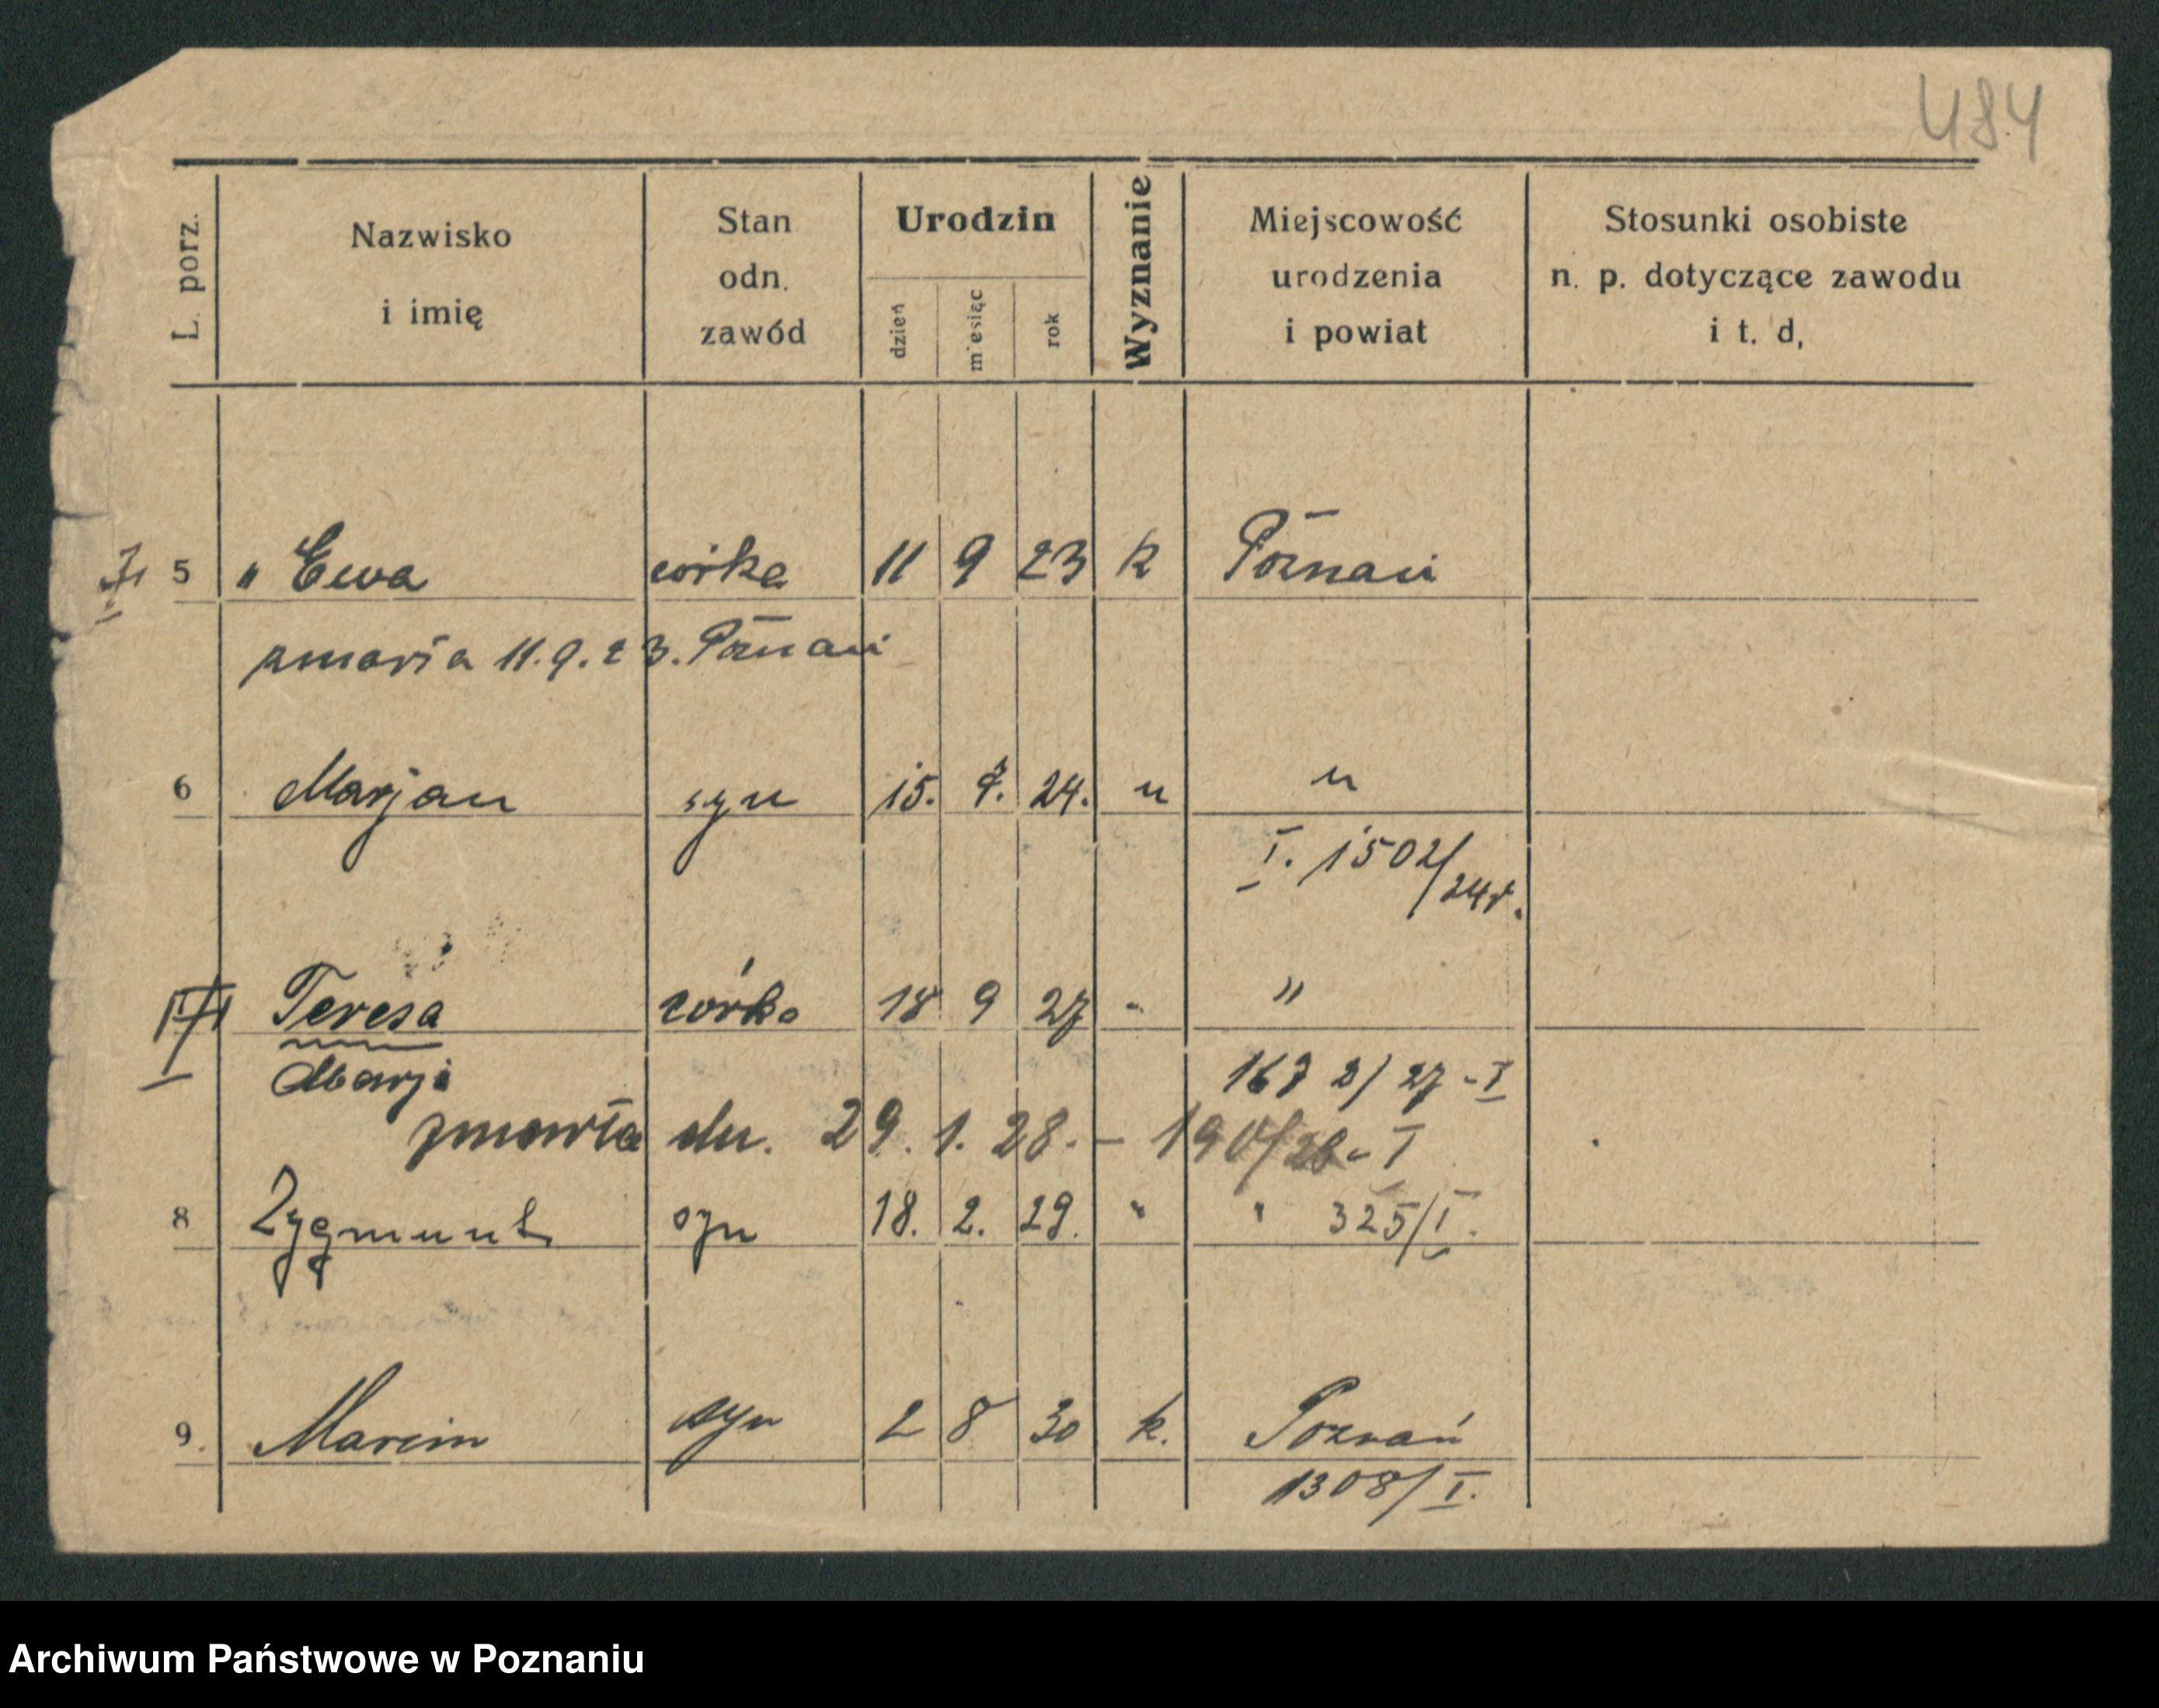 484
L. porz.
Nazwisko
i imię
Stan
odn.
zawód
Urodzin
dzień
miesiąc
rok
Wyznanie
Miejscowość
urodzenia
i powiat
Stosunki osobiste
n. p. dotyczące zawodu
i t. d,
5 " Ewa córka 11 9 23 k Poznań
zmarła 11.9.23. Poznań
6 Marjan syn 15. 24. " "
I. 1502/24r.
Teresa córka 18 9 27 " "
Marja 1672/27 - I
zmarła dn. 29. 1. 28. - 190/28 - I
8 Zygmunt syn 18. 2. 29. " " 325/I.
9. Marcin syn 2 8 30 k. Poznań
1308/I.
Archiwum Państwowe w Poznaniu